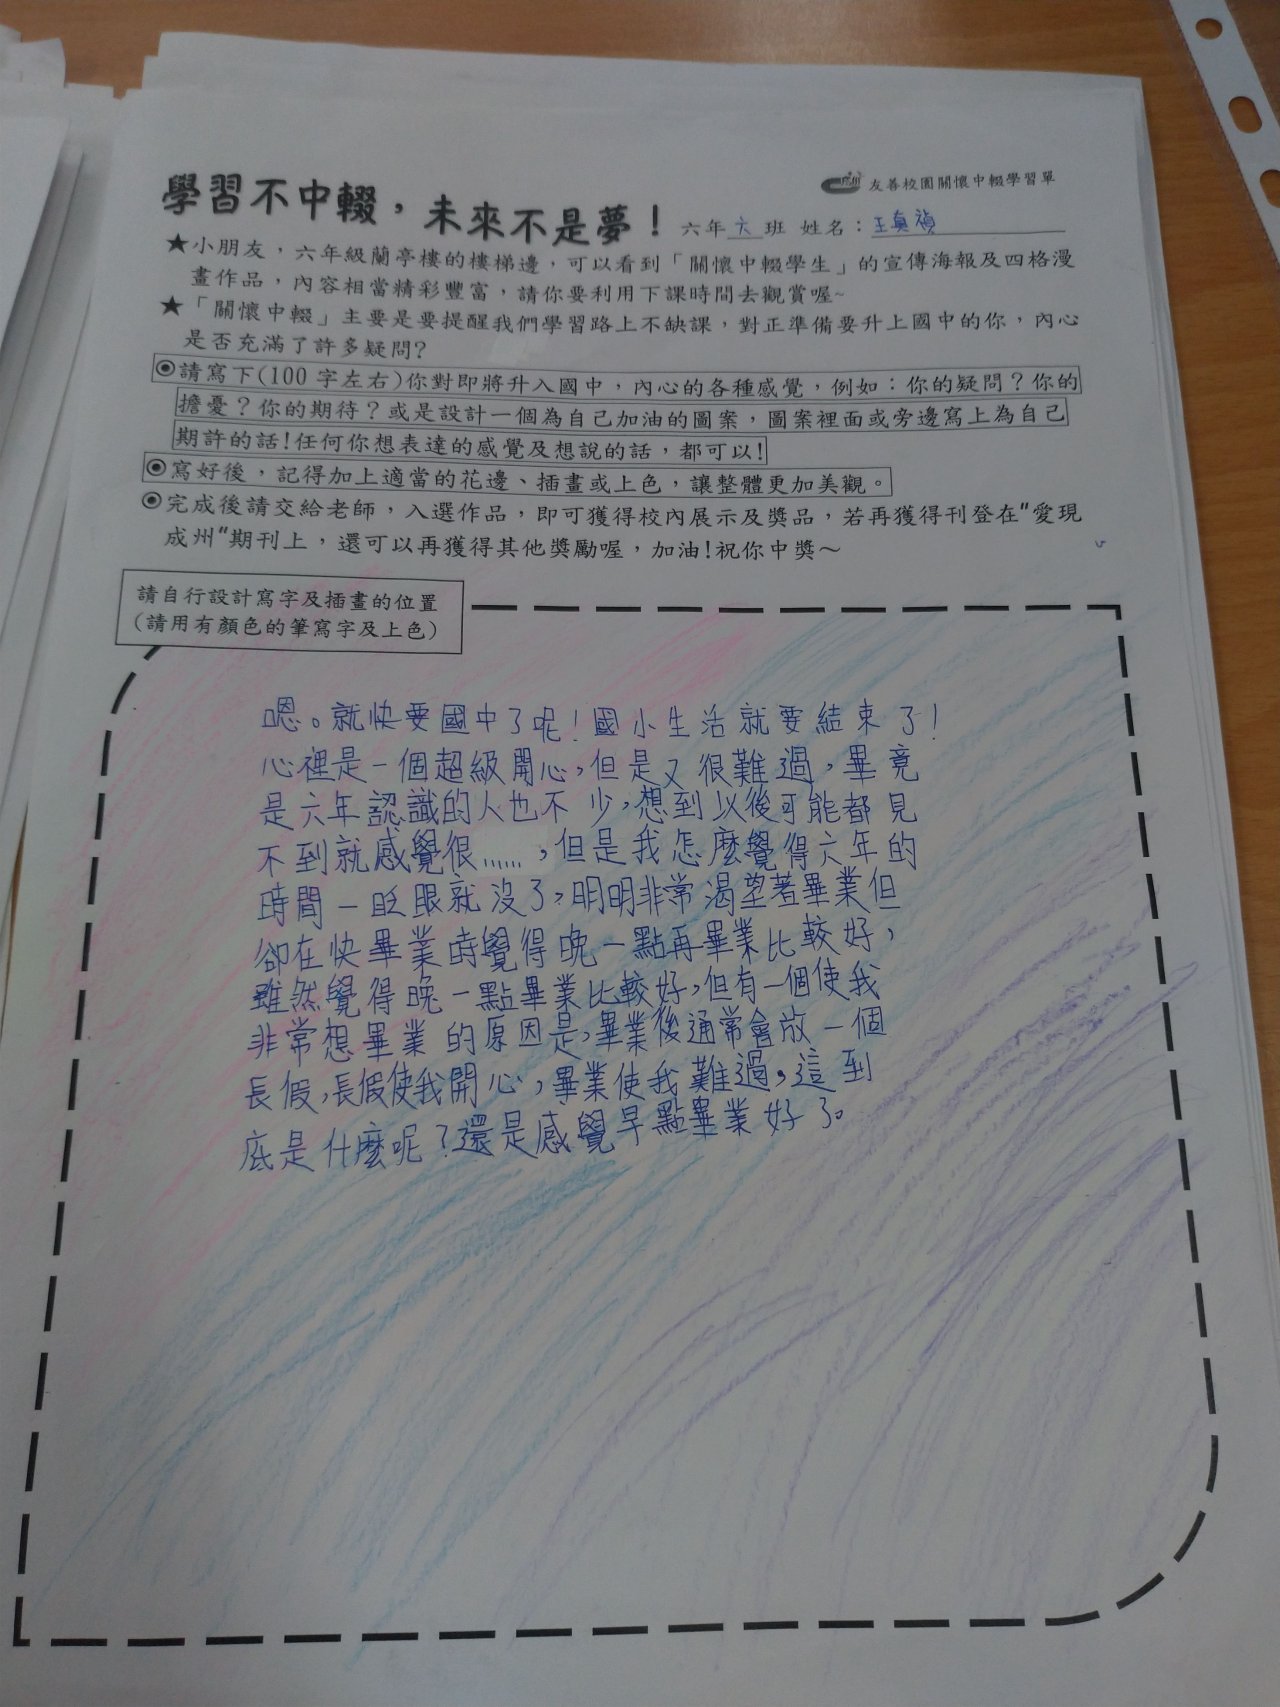 友善校園關懷中輟學習單
學習不中輟，未來不是夢！
六年六班 姓名：王真禎
★小朋友，六年級蘭亭樓的樓梯邊，可以看到「關懷中輟學生」的宣傳海報及四格漫
畫作品，內容相當精彩豐富，請你要利用下課時間去觀賞喔~
★「關懷中輟」主要是要提醒我們學習路上不缺課，對正準備要升上國中的你，內心
是否充滿了許多疑問？
◉請寫下(100字左右)你對即將升入國中，內心的各種感覺，例如：你的疑問？你的
擔憂？你的期待？或是設計一個為自己加油的圖案，圖案裡面或旁邊寫上為自己
期許的話！任何你想表達的感覺及想說的話，都可以！
◉寫好後，記得加上適當的花邊、插畫或上色，讓整體更加美觀。
◉完成後請交給老師，入選作品，即可獲得校內展示及獎品，若再獲得刊登在"愛現
成州"期刊上，還可以再獲得其他獎勵喔，加油！祝你中獎～
請自行設計寫字及插畫的位置
(請用有顏色的筆寫字及上色)
嗯。就快要國中了呢！國小生活就要結束了！
心裡是一個超級開心，但是又很難過，畢竟
是六年認識的人也不少，想到以後可能都見
不到就感覺很……，但是我怎麼覺得六年的
時間一眨眼就沒了，明明非常渴望著畢業但
卻在快畢業時覺得晚一點再畢業比較好，
雖然覺得晚一點畢業比較好，但有一個使我
非常想畢業的原因是，畢業後通常會放一個
長假，長假使我開心，畢業使我難過，這到
底是什麼呢？還是感覺早點畢業好了。